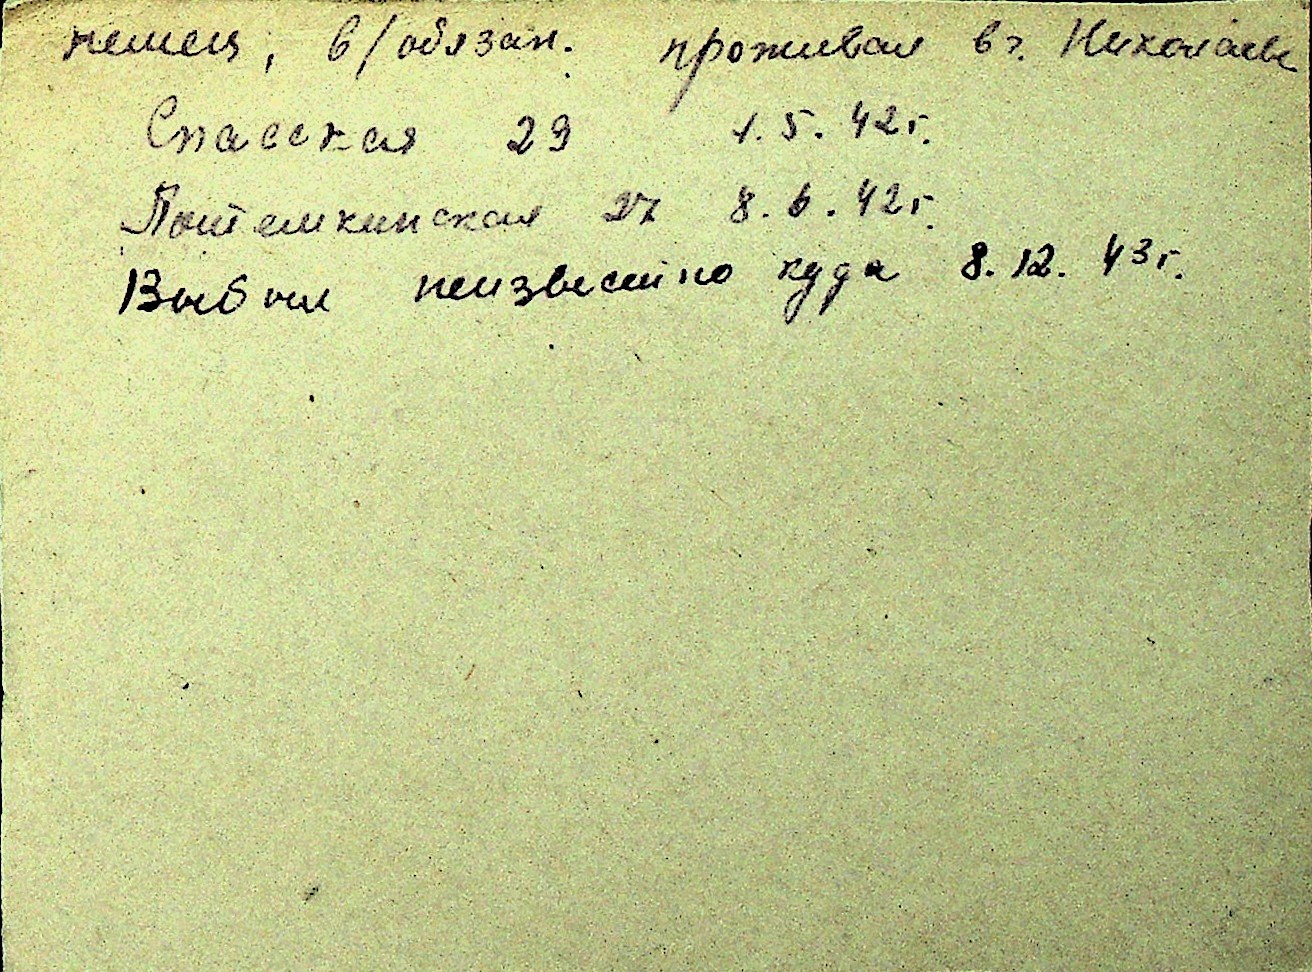 немец, в/обязан. проживал в г. Николаеве
Спасская 29 1.5.42г.
Потемкинская 27 8.6.42г.
Выбыл неизвестно куда 8.12.43г.